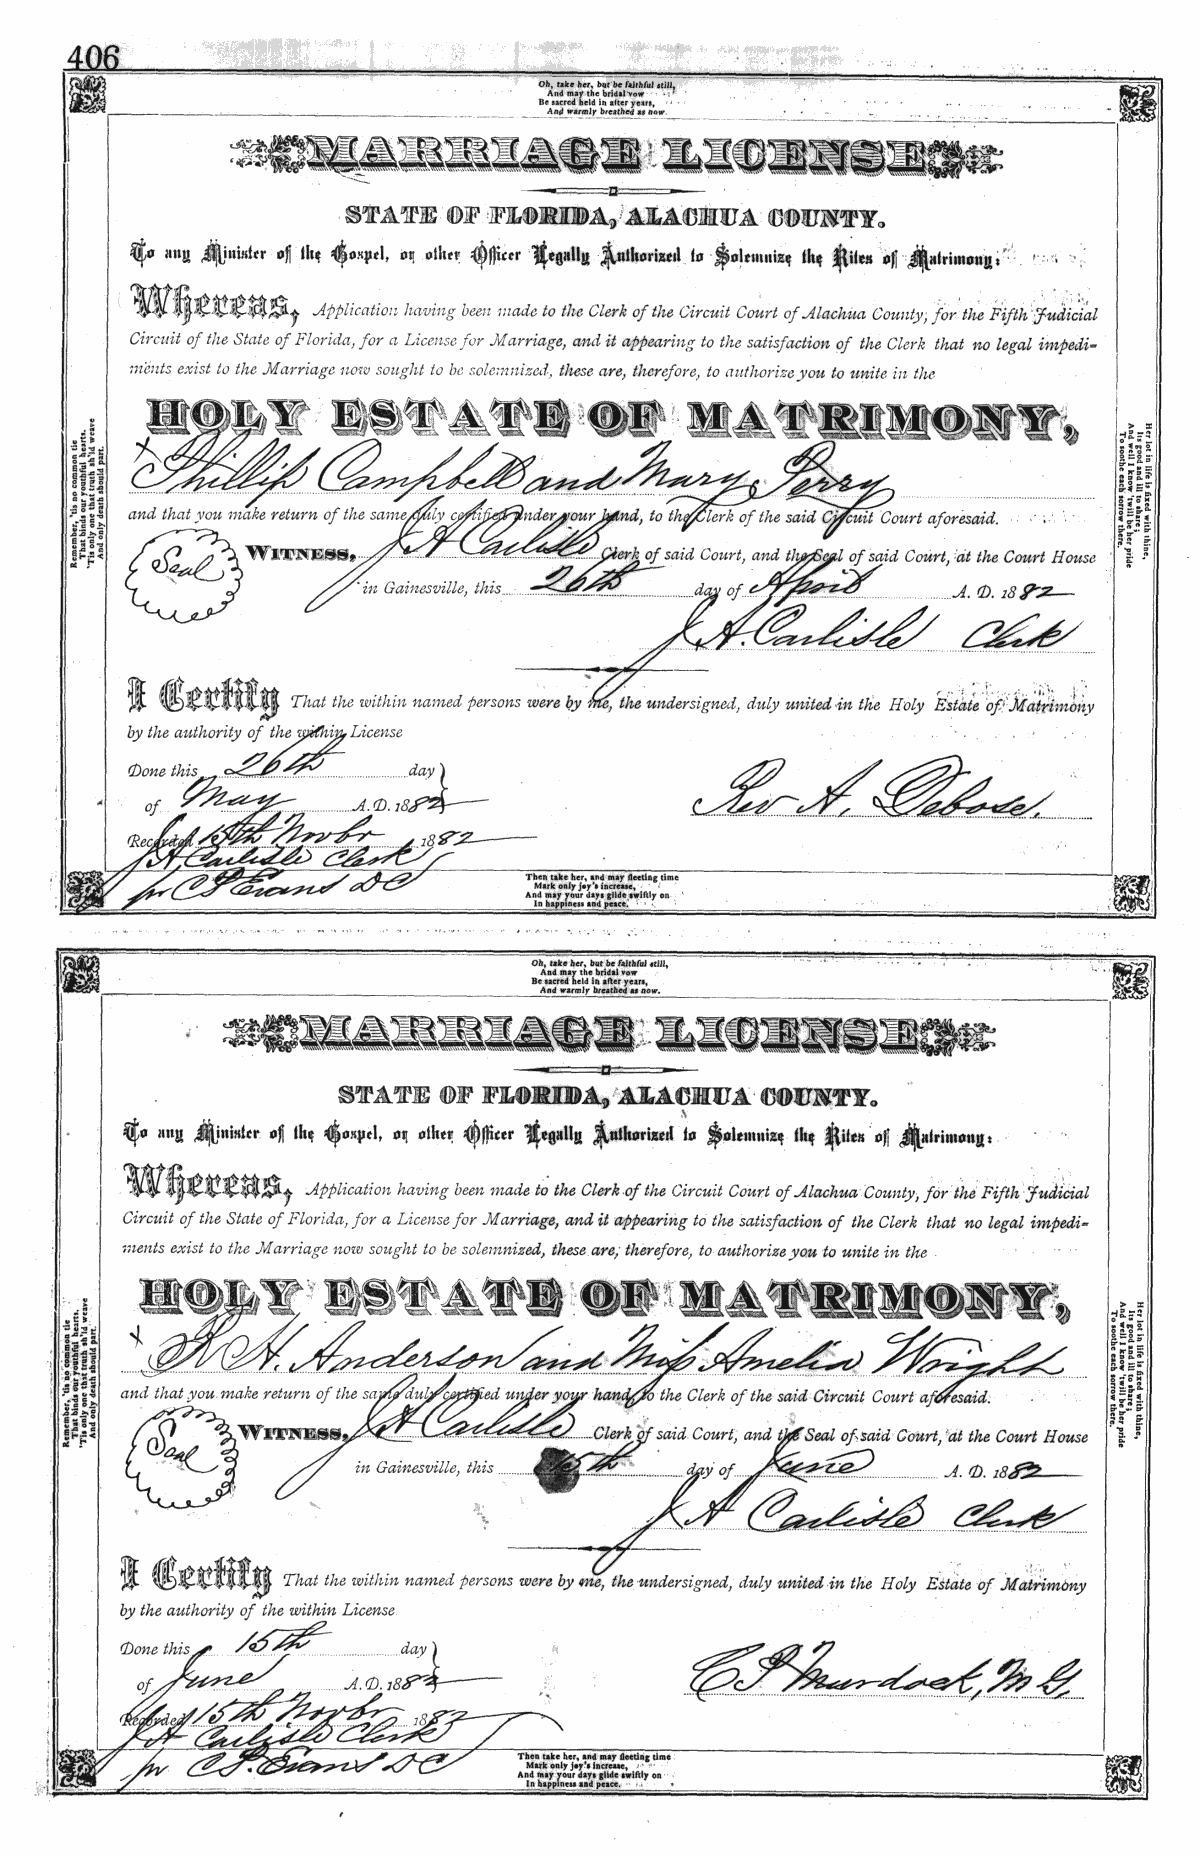 406
Oh, take her, but be faithful still,
And may the bridal vow
Be sacred held in after years,
And warmly breathed as now.
MARRIAGE LICENSE
STATE OF FLORIDA, ALACHUA COUNTY.
To any Minister of the Gospel, or other Officer Legally Authorized to Solemnize the Rites of Matrimony:
Whereas, Application having been made to the Clerk of the Circuit Court of Alachua County, for the Fifth Judicial
Circuit of the State of Florida, for a License for Marriage, and it appearing to the satisfaction of the Clerk that no legal impedi-
ments exist to the Marriage now sought to be solemnized, these are, therefore, to authorize you to unite in the
HOLY ESTATE OF MATRIMONY,
x Phillip Campbell and Mary Perry
and that you make return of the same duly certified under your hand, to the Clerk of the said Circuit Court aforesaid.
Seal
WITNESS, J A Carlisle Clerk of said Court, and the Seal of said Court, at the Court House
in Gainesville, this 26th day of April A. D. 1882
J. A. Carlisle Clerk
I Certify That the within named persons were by me, the undersigned, duly united in the Holy Estate of Matrimony
by the authority of the within License
Done this 26th day
of May A.D. 1882
Rev A. Debose.
Recorded 15th Novbr 1882
J A, Carlisle Clerk
pr C P Evans DC
Remember, 'tis no common tie
That binds our youthful hearts.
'Tis only one that truth sh'ld weave
And only death should part.
Her lot in life is fixed with thine,
Its good and ill to share;
And well I know 'twill be her pride
To soothe each sorrow there.
Then take her, and may fleeting time
Mark only joy's increase,
And may your days glide swiftly on
In happiness and peace.
Oh, take her, but be faithful still,
And may the bridal vow
Be sacred held in after years,
And warmly breathed as now.
MARRIAGE LICENSE
STATE OF FLORIDA, ALACHUA COUNTY.
To any Minister of the Gospel, or other Officer Legally Authorized to Solemnize the Rites of Matrimony:
Whereas, Application having been made to the Clerk of the Circuit Court of Alachua County, for the Fifth Judicial
Circuit of the State of Florida, for a License for Marriage, and it appearing to the satisfaction of the Clerk that no legal impedi-
ments exist to the Marriage now sought to be solemnized, these are, therefore, to authorize you to unite in the
HOLY ESTATE OF MATRIMONY,
x H. Anderson and Miss Amelia Wright
and that you make return of the same duly certified under your hand, to the Clerk of the said Circuit Court aforesaid.
Seal
WITNESS, J A Carlisle Clerk of said Court, and the Seal of said Court, at the Court House
in Gainesville, this 15th day of June A. D. 1882
J A Carlisle Clerk
I Certify That the within named persons were by me, the undersigned, duly united in the Holy Estate of Matrimony
by the authority of the within License
Done this 15th day
of June A.D. 1882
C P Murdock, M G,
Recorded 15th Novbr 1882
J A Carlisle Clerk
pr C P. Evans DC
Remember, 'tis no common tie
That binds our youthful hearts.
'Tis only one that truth sh'ld weave
And only death should part.
Her lot in life is fixed with thine,
Its good and ill to share;
And well I know 'twill be her pride
To soothe each sorrow there.
Then take her, and may fleeting time
Mark only joy's increase,
And may your days glide swiftly on
In happiness and peace.